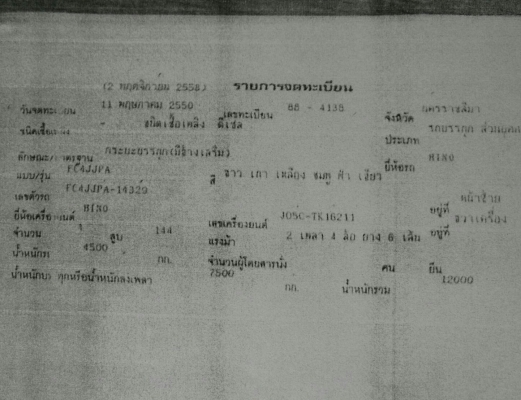 (2 พฤศจิกายน 2558) รายการจดทะเบียน
วันจดทะเบียน 11 พฤษภาคม 2550 เลขทะเบียน 88 - 4138 จังหวัด นครราชสีมา
ชนิดเชื้อเพลิง ดีเซล ประเภท รถบรรทุก ส่วนบุคคล
ลักษณะ/มาตรฐาน กระบะบรรทุก(มีข้างเสริม) ยี่ห้อรถ HINO
แบบ/รุ่น FC4JJPA สี ขาว เทา เหลือง ชมพู ฟ้า เขียว
เลขตัวรถ FC4JJPA-14329 อยู่ที่ หน้าซ้าย
ยี่ห้อเครื่องยนต์ HINO เลขเครื่องยนต์ J05C-TK16211 อยู่ที่ ขวาเครื่อง
จำนวน สูบ 144 แรงม้า 2 เพลา 4 ล้อ ยาง 6 เส้น
น้ำหนักรถ 4500 กก. จำนวนผู้โดยสารนั่ง คน ยืน
น้ำหนักบรรทุกหรือน้ำหนักลงเพลา 7500 กก. น้ำหนักรวม 12000